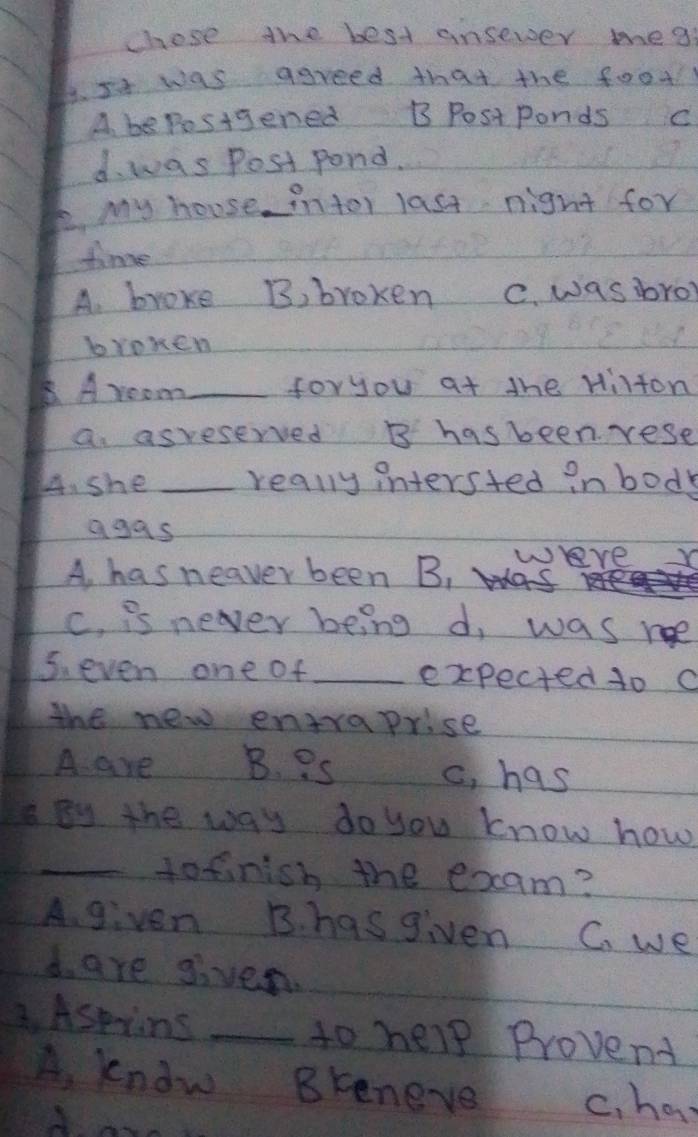 chose the best ansewer meg
1. It was agreed that the foot
A. be Postgened B Post Ponds C
d. was Post pond.
2, My house intor last night for
time
A. broke B, broken C. was bro
broken
3. A room for you at the Hilton
a. as reserved B has been rese
4. she really intersted in bod
agas
A. has neaver been B, were
C, is never being d, was
5. even one of expected to c
the new entraprise
A. are B. is C, has
6 By the way do you know how
to finish the exam?
A. given B. has given C, we
d. are given.
7, Asprins to help Provent
A, know B keneve C, ha
d.